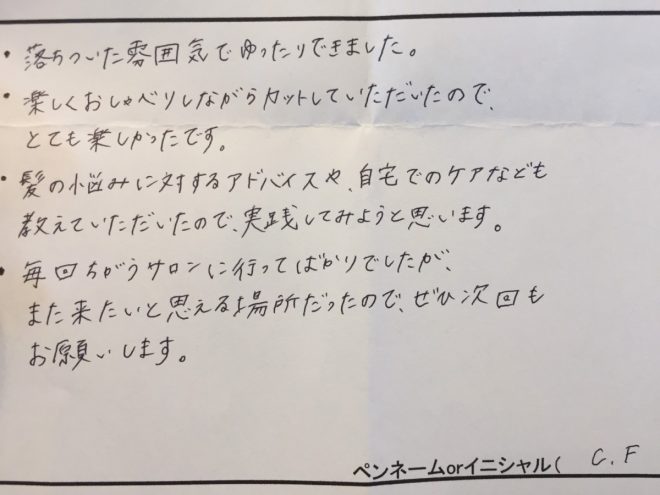 ・落ちついた雰囲気でゆったりできました。
・楽しくおしゃべりしながらカットしていただいたので、
とても楽しかったです。
・髪の悩みに対するアドバイスや、自宅でのケアなども
教えていただいたので、実践してみようと思います。
・毎回ちがうサロンに行ってばかりでしたが、
また来たいと思える場所だったので、ぜひ次回も
お願いします。
ペンネームorイニシャル( C.F